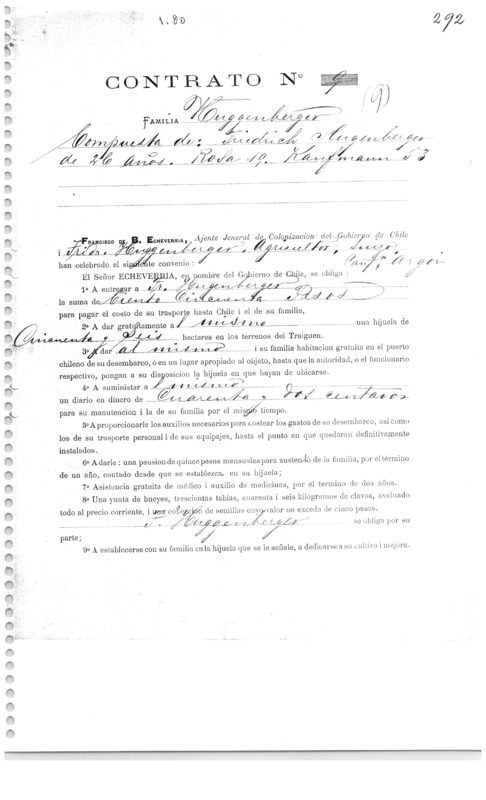 1.80
292
CONTRATO Nº 9
(9)
FAMILIA Huggenberger
Compuesta de: Friedrich Hugenberger
de 26 años. Rosa 19. Kaufmann 53
FRANCISCO DE B. ECHEVERRIA, Ajente Jeneral de Colonizacion del Gobierno de Chile
i Fridr. Huggenberger, Agricultor, suizo,
Cant.n Argóv.
han celebrado el siguiente convenio:
El Señor ECHEVERRIA, en nombre del Gobierno de Chile, se obliga:
1º A entregar a Fr. Hugenberger
la suma de Ciento Cincuenta Pesos
para pagar el costo de su trasporte hasta Chile i el de su familia,
2º A dar gratuitamente al mismo una hijuela de
Cincuenta y Seis hectares en los terrenos del Traiguen.
3º A dar al mismo i su familia habitacion gratuita en el puerto
chileno de su desembarco, ó en un lugar apropiado al objeto, hasta que la autoridad, o el funcionario
respectivo, pongan a su disposicion la hijuela en que hayan de ubicarse.
4º A suministor a l mismo
un diario en dinero de Cuarenta y dos centavos
para su manutencion i la de su familia por el mismo tiempo.
5º A proporcionarle los auxilios necesarios para costear los gastos de su desembarco, así como
los de su trasporte personal i de sus equipajes, hasta el punto en que quedarán definitivamente
instalados.
6º A darle: una pension de quince pesos mensuales para sustento de la familia, por el término
de un año, contado desde que se establezca en su hijuela;
7º Asistencia gratuita de médico i auxilio de medicinas, por el termino de dos años.
8º Una yunta de bueyes, trescientas tablas, cuarenta i seis kilógramos de clavos, avaluado
todo al precio corriente, i una coleccion de semillas cuyo valor no exceda de cinco pesos.
F. Huggenberger se obliga por su
parte;
9º A establecerse con su familia en la hijuela que se le señale, a dedicarse a su cultivo i mejora.